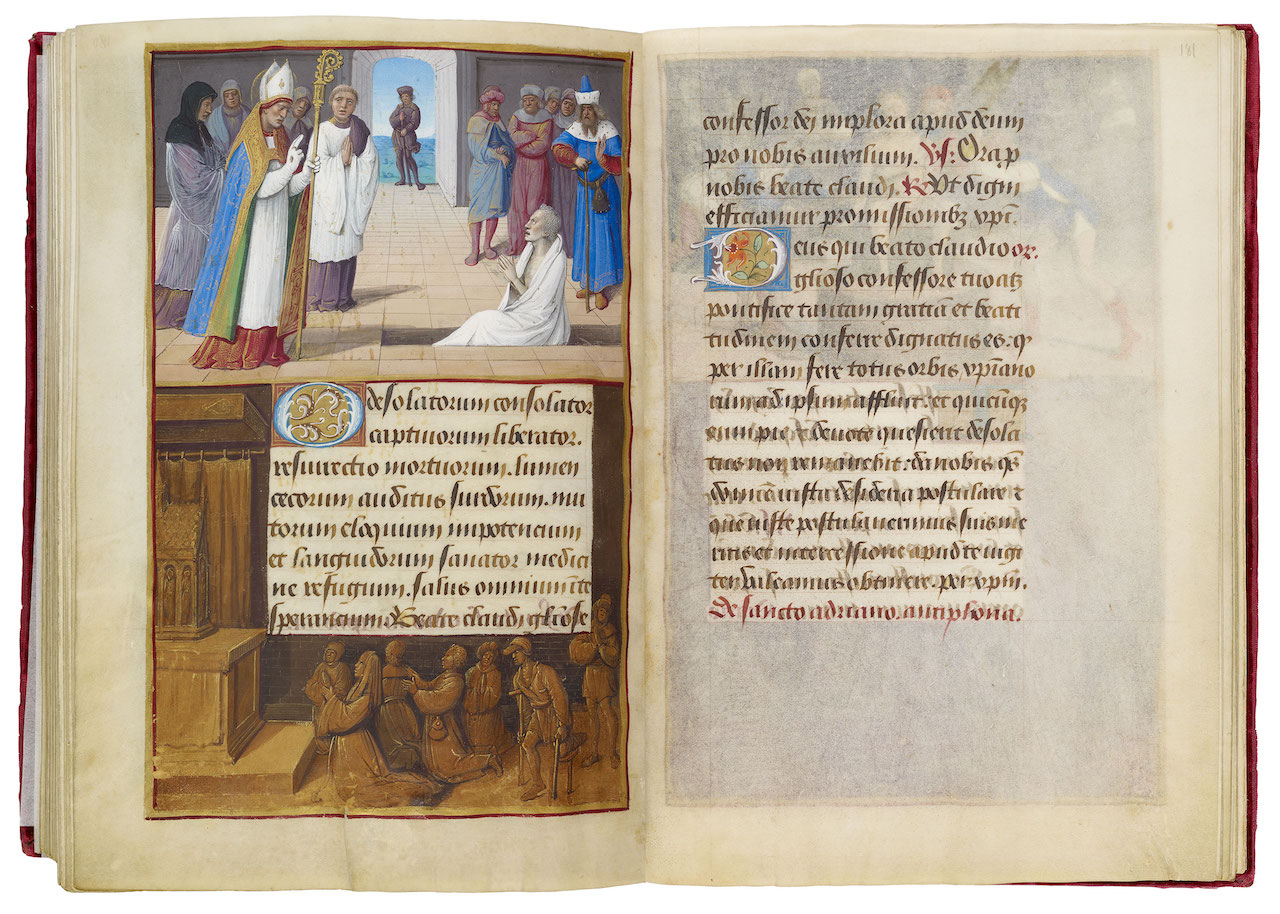 O desolatorum consolator
captivorum liberator.
resurrectio mortuorum. lumen
cecorum auditus surdorum. mu
torum eloquium impotencium
et languidorum sanator medici
ne refugium. salus omnium ī te
sperancium. O Beate claudi gl̄iose
181
confessor dei implora apud deum
pro nobis auxilium. Vs: Ora p̄
nobis beate claudi. R Vt digni
efficiamur promissionibꝫ xp̄i.
Deus qui beato claudio or.
glioso confessore tuo atqꝫ
pontifice tantam graciam et beati
tudinem conferre dignatus es: q̄
per illam fere totus orbis xp̄iano
rum ad ipsum affluit. et quicūqꝫ
eum pie et devote quesierit desola
tus non remanebit: da nobis q̄s
dom̄e iusta desideria postulare et
que iuste postulaverimus suis me
ritis et intercessione apud te iugi
ter valeamus obtinere. per xp̄m.
De sancto adriano. antiphona.